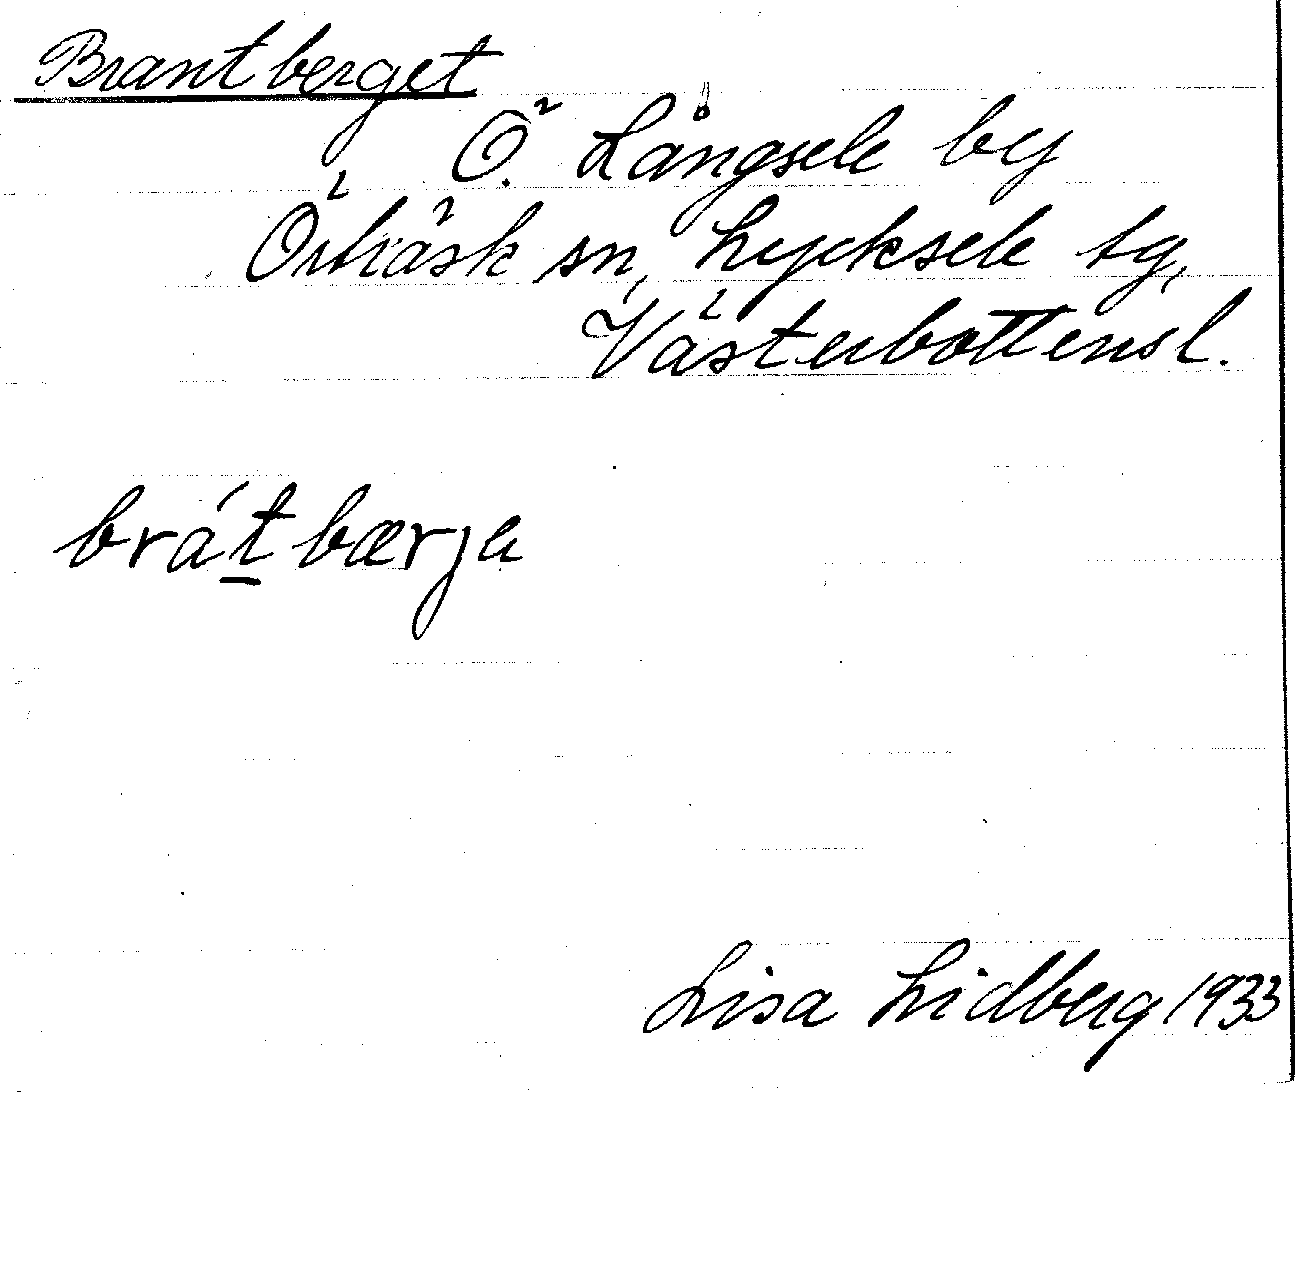 Brantberget
Ö. Långsele by
Örträsk sn, Lycksele tg,
Västerbottensl.
brát̲bærja
Lisa Lidberg 1933